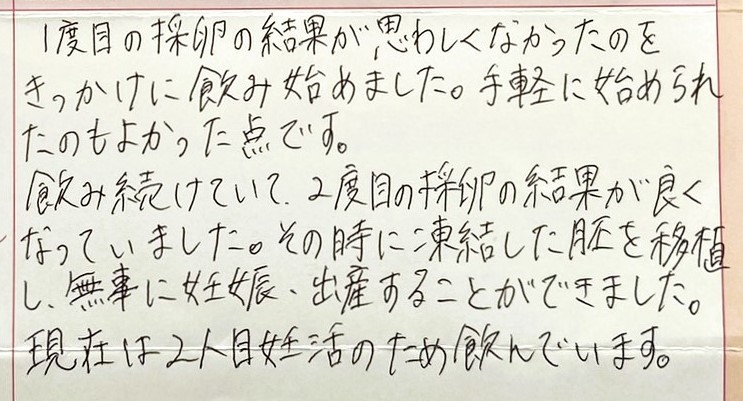 1度目の採卵の結果が思わしくなかったのを
きっかけに飲み始めました。手軽に始められ
たのもよかった点です。
飲み続けていて、2度目の採卵の結果が良く
なっていました。その時に凍結した胚を移植
し、無事に妊娠、出産することができました。
現在は2人目妊活のため飲んでいます。